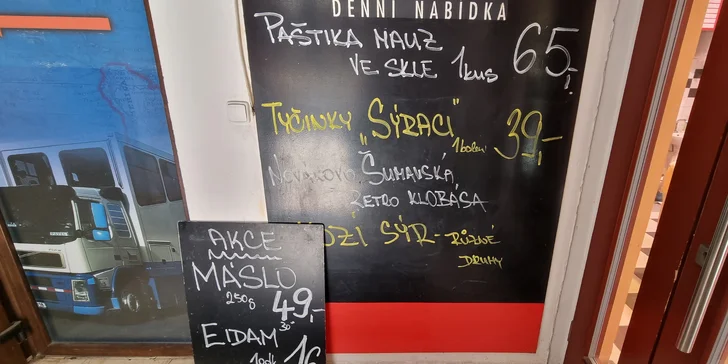 DENNÍ NABÍDKA
PAŠTIKA MAUZ
VE SKLE 1kus 65,-
TYČINKY „SÝRACI“
1balení 39,-
NOVÁKOVO ŠUMAVSKÁ
RETRO KLOBÁSA
OZÍ SÝR - RŮZNÉ
DRUHY
AKCE
MÁSLO
250g 49,-
EIDAM 30%